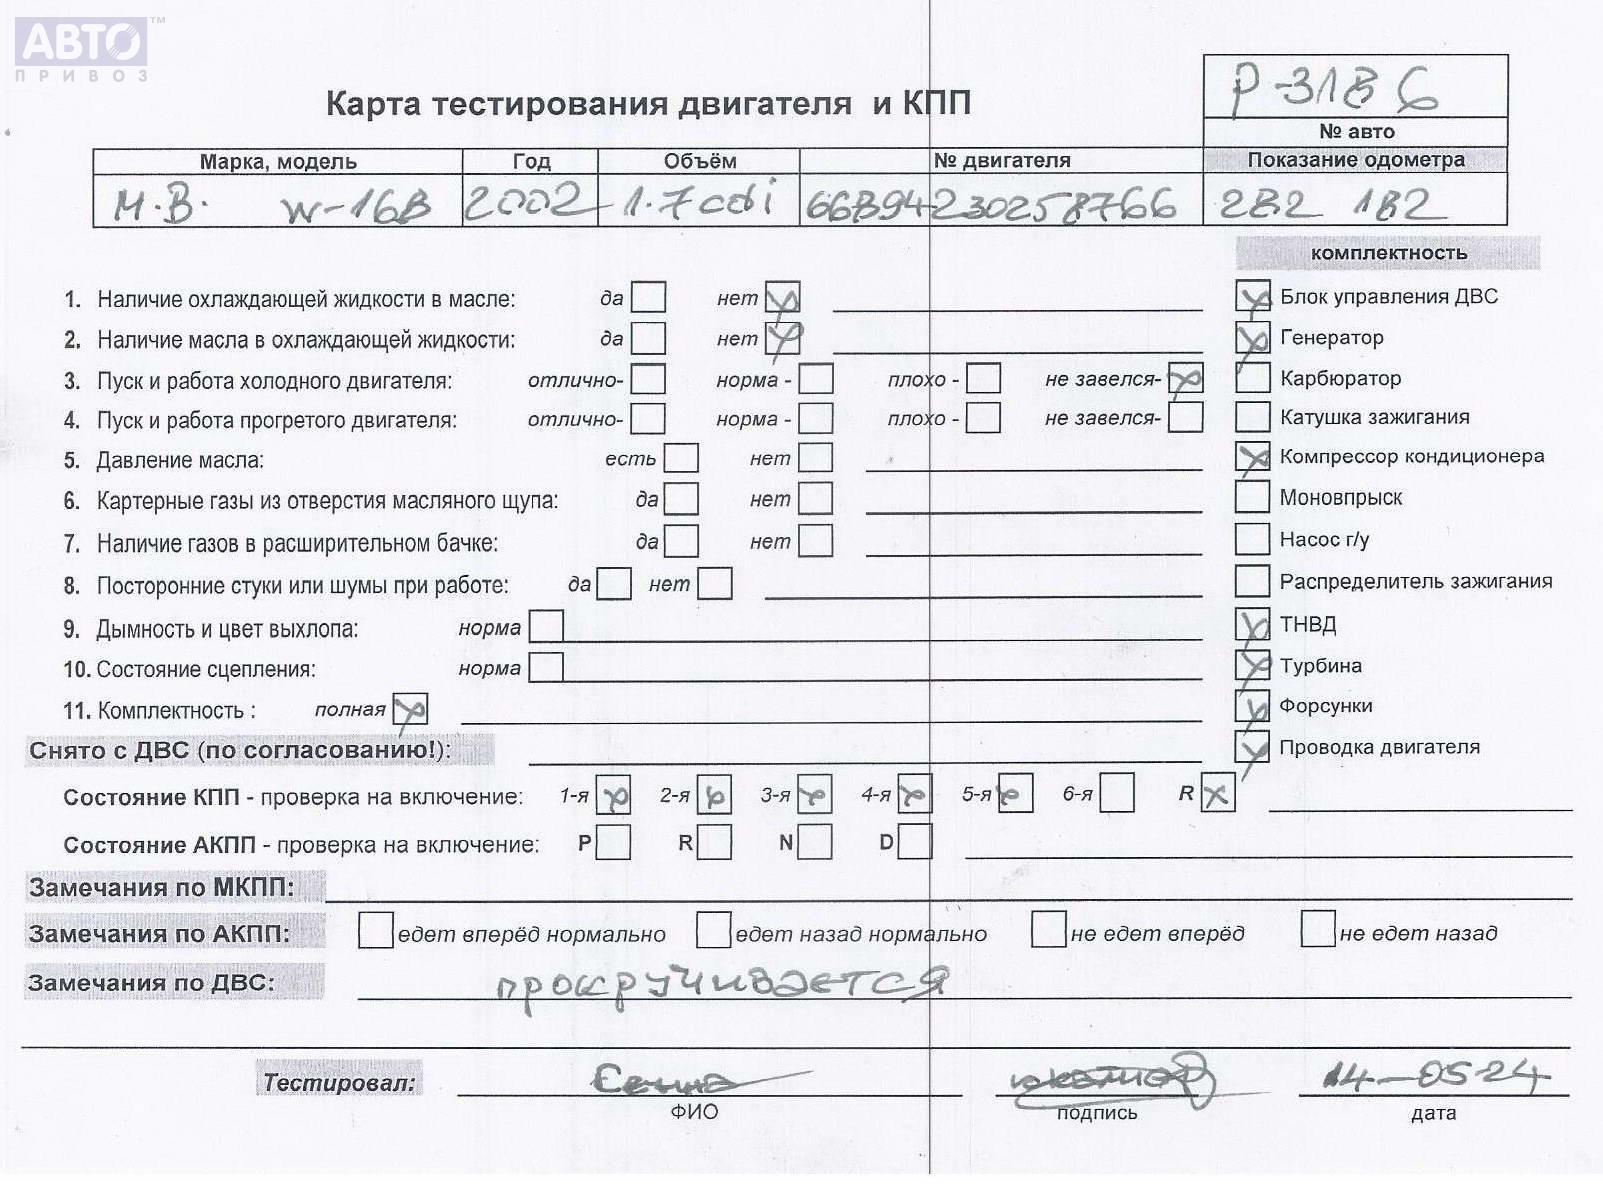 АВТО™
ПРИВОЗ
Карта тестирования двигателя и КПП
Р-318 6
№ авто
Марка, модель Год Объём № двигателя Показание одометра
М.В. W-168 2002 1.7cdi 66894230258766 282 182
комплектность
1. Наличие охлаждающей жидкости в масле: да нет
Блок управления ДВС
2. Наличие масла в охлаждающей жидкости: да нет
Генератор
3. Пуск и работа холодного двигателя: отлично- норма - плохо - не завелся-
Карбюратор
4. Пуск и работа прогретого двигателя: отлично- норма - плохо - не завелся-
Катушка зажигания
5. Давление масла: есть нет
Компрессор кондиционера
6. Картерные газы из отверстия масляного щупа: да нет
Моновпрыск
7. Наличие газов в расширительном бачке: да нет
Насос г/у
8. Посторонние стуки или шумы при работе: да нет
Распределитель зажигания
9. Дымность и цвет выхлопа: норма
ТНВД
10. Состояние сцепления: норма
Турбина
11. Комплектность : полная
Форсунки
Снято с ДВС (по согласованию!):
Проводка двигателя
Состояние КПП - проверка на включение: 1-я 2-я 3-я 4-я 5-я 6-я R
Состояние АКПП - проверка на включение: P R N D
Замечания по МКПП:
Замечания по АКПП: едет вперёд нормально едет назад нормально не едет вперёд не едет назад
Замечания по ДВС: прокручивается
Тестировал: 14-05-24
ФИО подпись дата